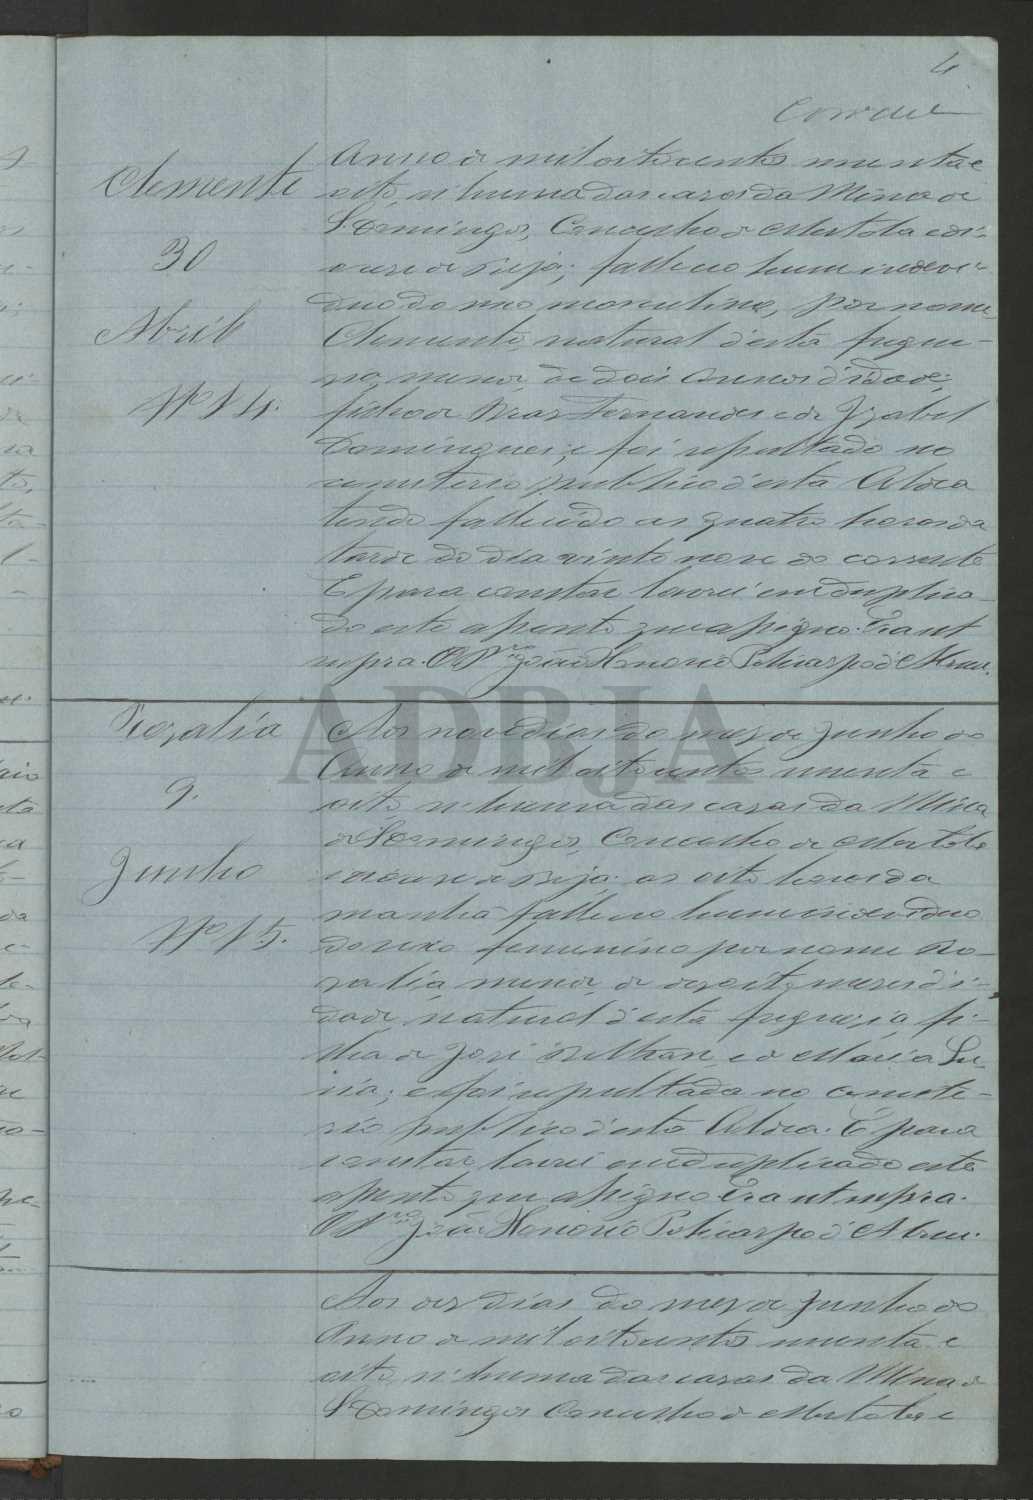 4
Clemente
30
Abril
Nº 14.
Anno de mil oitocentos secenta e
oito, n'huma das casas da Mina de
S. Domingos, Concelho de Mertola dio-
cese de Beja; falleceo hum indevi-
duo do sexo masculino, por nome
Clemente, natural d'esta fregue-
sia, menor, de dois annos d'idade;
filho de Braz Fernandes e de Izabel
Domingues; e foi sepultado no
cemiterio publico d'esta Aldea
tendo fallecido as quatro horas da
tarde do dia vinte nove do corrente
E para constar lavrei em duplica-
do este assento que assigno. Era ut
supra. O Pº João Honorio Policarpo d'Abreu.
ADBJA
Rozalia
9.
Junho
Nº 15.
Aos nove dias do mez de Junho do
Anno de mil oitocentos secenta e
oito, n'huma das casas da Mina
de S. Domingos, Concelho de Mertola
diocese de Beja: as oito horas da
manhã falleceo hum indeviduo
do sexo femenino por nome Ro-
zalia, menor, de dezoito mezes d'i-
dade, natural d'esta freguesia, fi-
lha de José e de Maria Lu-
zia; e foi sepultada no cemite-
rio publico d'esta Aldea. E para
constar lavrei em duplicado este
assento que assigno Era ut supra.
O Pº João Honorio Policarpo d'Abreu.
Aos dez dias do mez de Junho do
Anno de mil oitocentos secenta e
oito, n'huma das casas da Mina de
S. Domingos Concelho de Mertola e